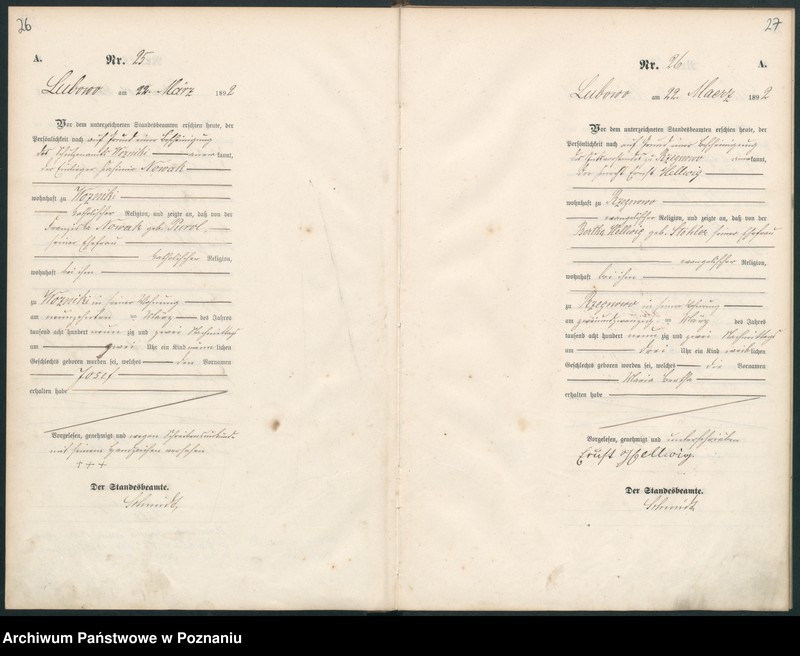 26
A. Nr. 25
Lubowo am 22. März 1892
Vor dem unterzeichneten Standesbeamten erschien heute, der
Persönlichkeit nach auf Grund einer Bescheinigung
des Schulzenamts Wozniki anerkannt,
der Einlieger Casimir Nowak
wohnhaft zu Wozniki
katholischer Religion, und zeigte an, daß von der
Franziska Nowak geb.
seiner Ehefrau
katholischer Religion,
wohnhaft bei ihm
zu Wozniki in seiner Wohnung
am neunzehnten März des Jahres
tausend acht hundert neun zig und zwei Nachmittags
um zwei Uhr ein Kind männlichen
Geschlechts geboren worden sei, welches den Vornamen
Josef
erhalten habe
Vorgelesen, genehmigt und wegen
mit seinem Handzeichen versehen
+ + +
Der Standesbeamte.
Schmidt
27
Nr. 26 A.
Lubowo am 22. Maerz 1892
Vor dem unterzeichneten Standesbeamten erschien heute, der
Persönlichkeit nach auf Grund einer Bescheinigung
des zu Rzegnowo anerkannt,
der Ernst Hellwig
wohnhaft zu Rzegnowo
evangelischer Religion, und zeigte an, daß von der
Bertha Hellwig geb. seiner Ehefrau
evangelischer Religion,
wohnhaft bei ihm
zu Rzegnowo in seiner Wohnung
am zweiundzwanzigsten März des Jahres
tausend acht hundert neun zig und zwei Nachmittags
um drei Uhr ein Kind weiblichen
Geschlechts geboren worden sei, welches die Vornamen
Maria Bertha
erhalten habe
Vorgelesen, genehmigt und unterschrieben
Ernst Hellwig.
Der Standesbeamte.
Schmidt
Archiwum Państwowe w Poznaniu